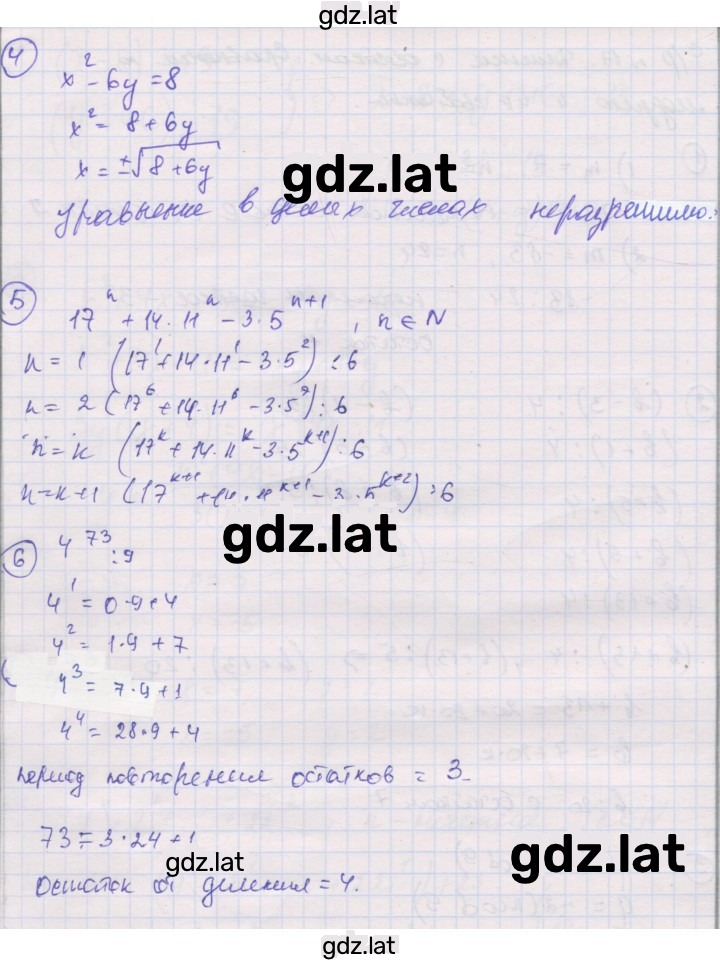 gdz.lat
4
x² - 6y = 8
x² = 8 + 6y
x = ±√8 + 6y
gdz.lat
Уравнение в целых числах неразрешимо.
5
17ⁿ + 14 · 11ⁿ - 3 · 5ⁿ⁺¹, n ∈ N
n = 1 (17¹ + 14 · 11¹ - 3 · 5²) ⋮ 6
n = 2 (17⁶ + 14 · 11⁶ - 3 · 5⁷) ⋮ 6
n = k (17ᵏ + 14 · 11ᵏ - 3 · 5ᵏ⁺¹) ⋮ 6
n = k+1 (17ᵏ⁺¹ + 14 · 11ᵏ⁺¹ - 3 · 5ᵏ⁺²) ⋮ 6
gdz.lat
6
4⁷³ : 9
4¹ = 0·9+4
4² = 1·9+7
4³ = 7·9+1
4⁴ = 28·9+4
период повторения остатков = 3
73 = 3·24+1
gdz.lat
gdz.lat
Остаток от деления = 4.
gdz.lat